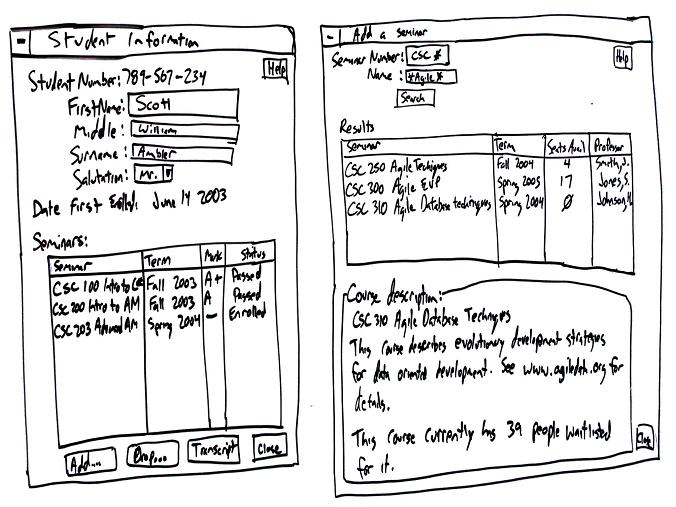 Student Information
Help
Student Number: 789-567-234
First Name: Scott
Middle: William
Surname: Ambler
Salutation: Mr.
Date First Enrolled: June 14 2003
Seminars:
Seminar Term Mark Status
CSC 100 Intro to Fall 2003 A+ Passed
CSC 200 Intro to AM Fall 2003 A Passed
CSC 203 Advanced AM Spring 2004 — Enrolled
Add... Drop... Transcript Close
Add a seminar
Help
Seminar Number: CSC *
Name: *Agile*
Search
Results
Seminar Term Seats Avail Professor
CSC 250 Agile Techniques Fall 2004 4 Smith, J.
CSC 300 Agile EUP Spring 2005 17 Jones, S.
CSC 310 Agile Database techniques Spring 2004 Ø Johnson,
Course description:
CSC 310 Agile Database Techniques
This course describes evolutionary development strategies
for data oriented development. See www.agiledata.org for
details.
This Course currently has 39 people waitlisted
for it.
Close